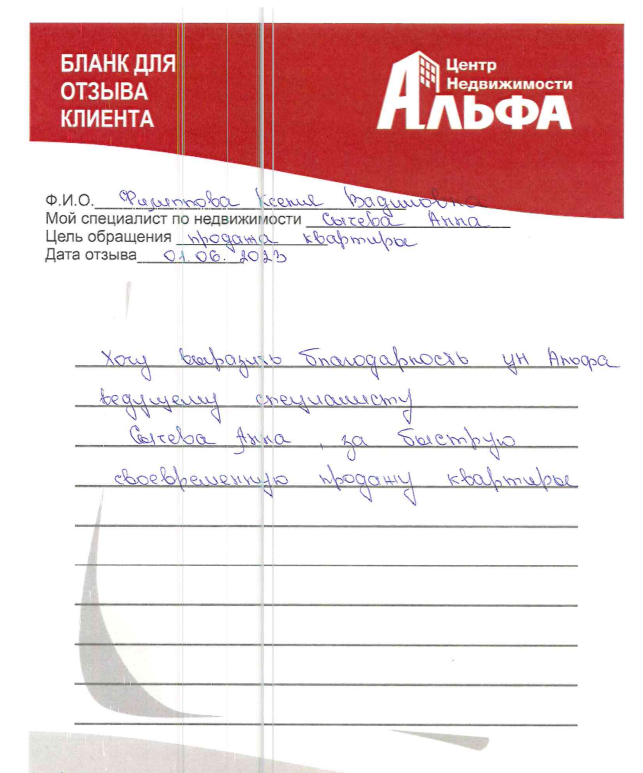 БЛАНК ДЛЯ
ОТЗЫВА
КЛИЕНТА
Центр
Недвижимости
АЛЬФА
Ф.И.О. Филиппова Ксения Вадимовна
Мой специалист по недвижимости Сычева Анна
Цель обращения продажа квартиры
Дата отзыва 01.06.2023
Хочу выразить благодарность цн Альфа
ведущему специалисту
Сычева Анна, за быструю
своевременную продажу квартиры